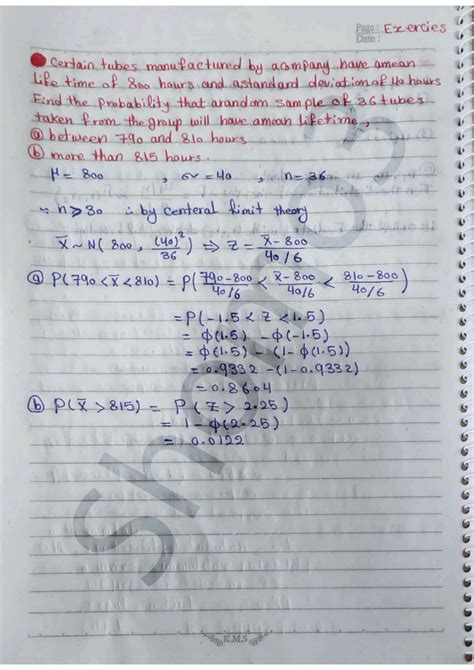 Page: Exercies
Date:
Certain tubes manufactured by acompany have amean
life time of 800 hours and astandard deviation of 40 hours
Find the probability that arandom sample of 36 tubes
taken from the group will have amean lifetime,
ⓐ between 790 and 810 hours
ⓑ more than 815 hours.
μ = 800 , σ = 40 , n = 36
∵ n ≥ 30 ∴ by centeral limit theory
X̄ ~ N( 800 , (40)²/36 ) ⇒ Z = (X̄ - 800)/(40/6)
ⓐ P(790 < X̄ < 810) = P( (790-800)/(40/6) < (X̄-800)/(40/6) < (810-800)/(40/6) )
= P(-1.5 < Z < 1.5)
= φ(1.5) - φ(-1.5)
= φ(1.5) - (1-φ(1.5))
= 0.9332 - (1-0.9332)
= 0.8604
ⓑ P(X̄ > 815) = P (Z > 2.25)
= 1 - φ(2.25)
= 0.0122
K.M.S